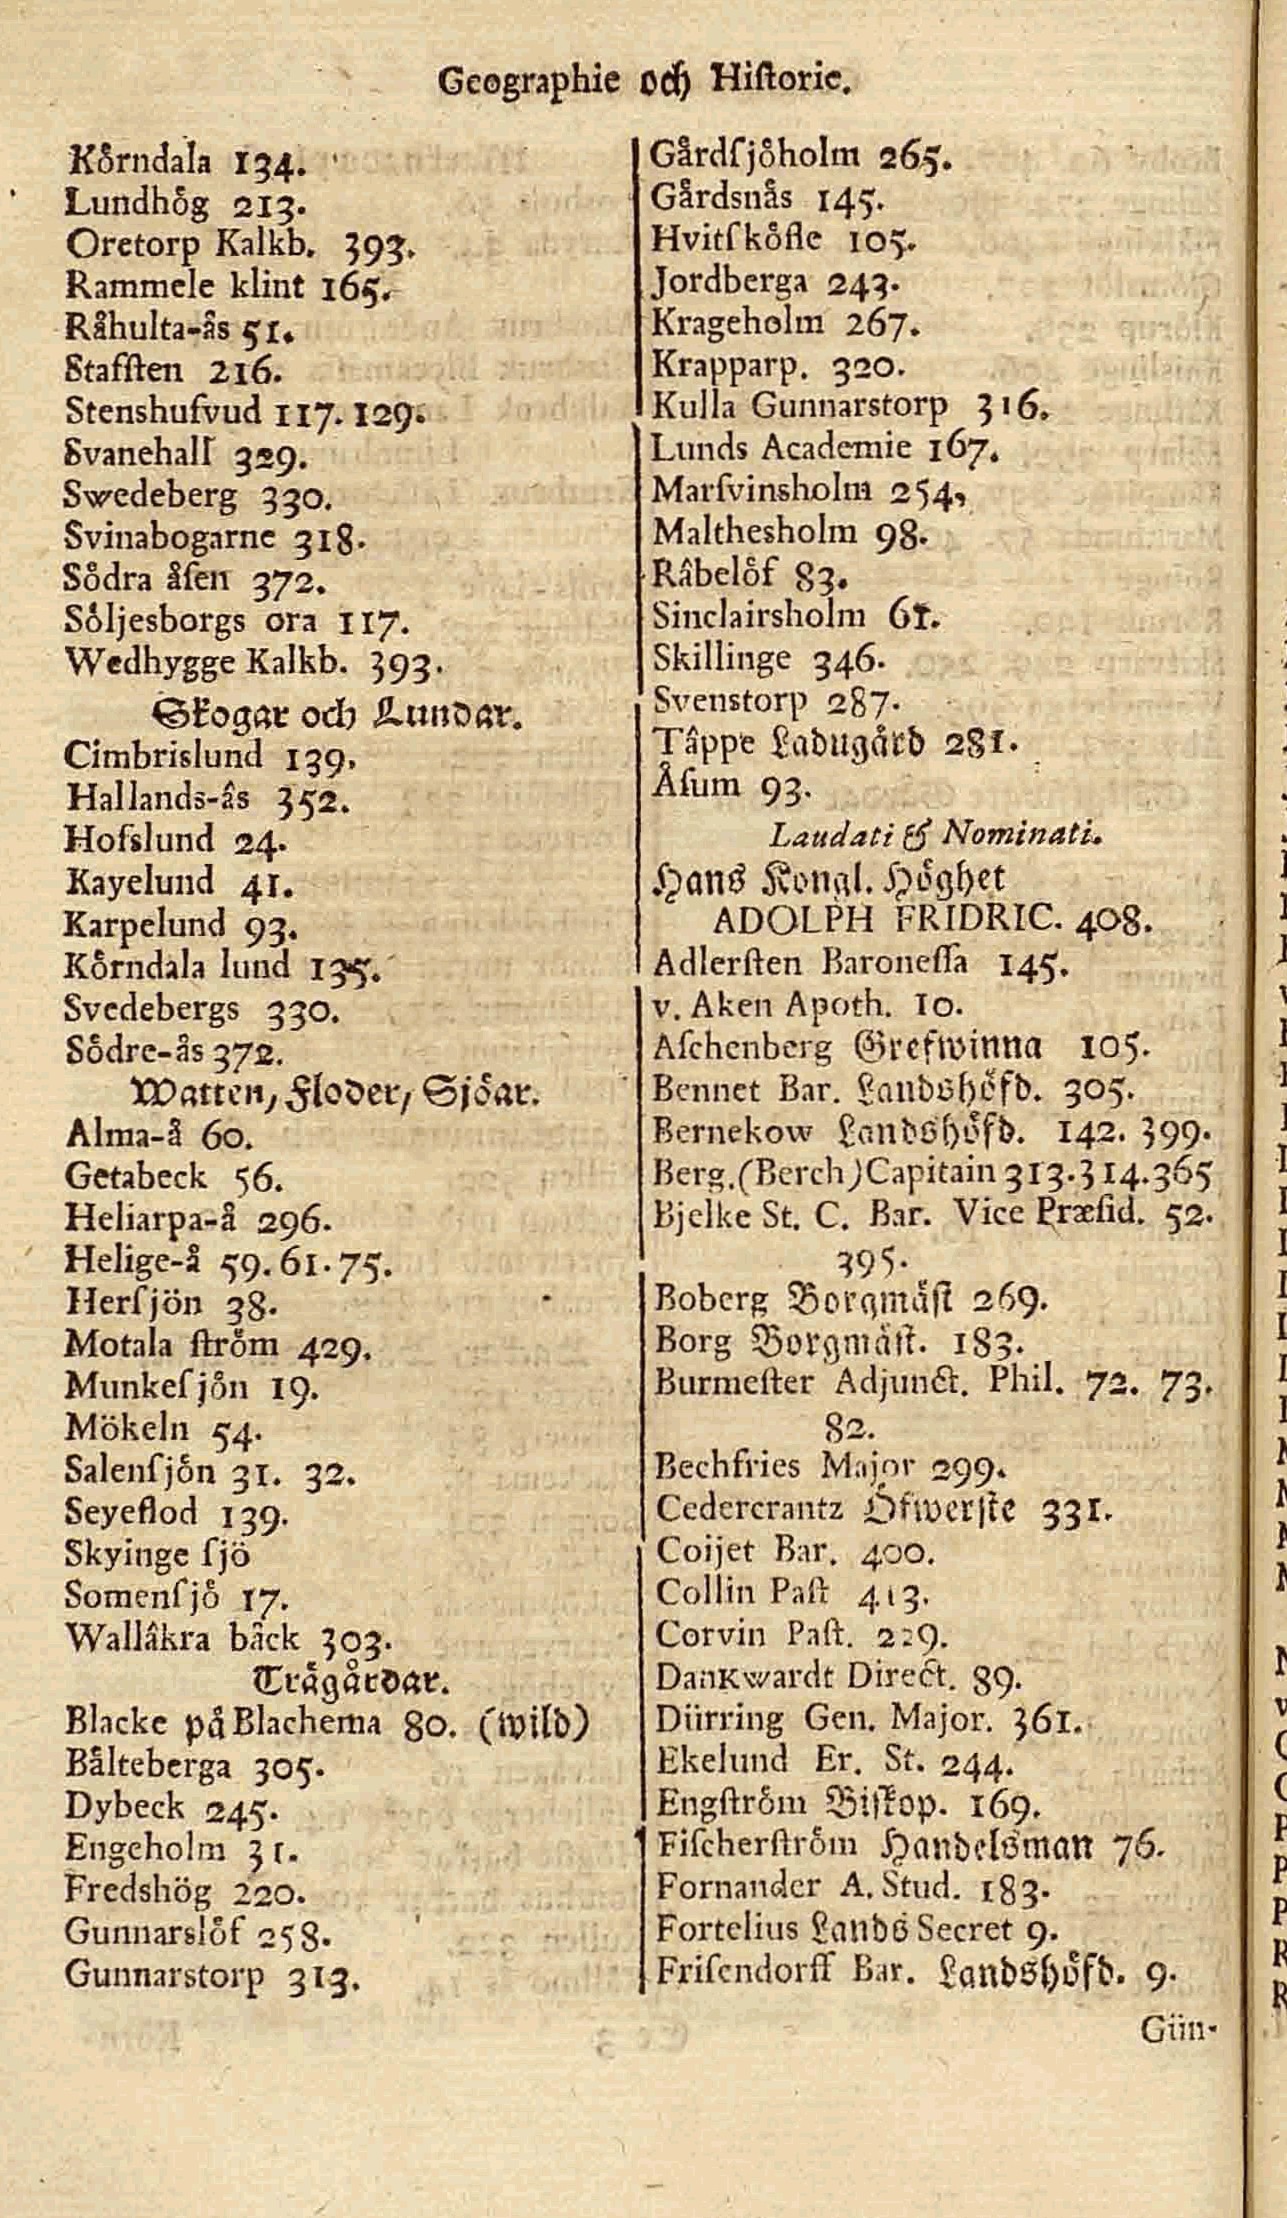 Geographie och Hiſtorie.
Kôrndala 134.
Lundhôg 213.
Oretorp Kalkb. 393.
Rammele klint 165.
Råhulta-ås 51.
Stafſten 216.
Stenshuſvud 117. 129.
Svanehall 329.
Swedeberg 330.
Svinabogarne 318.
Sôdra åſen 372.
Sôljesborgs ora 117.
Wedhygge Kalkb. 393.
Skogar och Lundar.
Cimbrislund 139.
Hallands-ås 352.
Hofslund 24.
Kayelund 41.
Karpelund 93.
Kôrndala lund 135.
Svedebergs 330.
Sôdre-ås 372.
Watten, Floder, Sjôar.
Alma-å 60.
Getabeck 56.
Heliarpa-å 296.
Helige-å 59. 61. 75.
Herſjön 38.
Motala ſtrôm 429.
Munkeſjôn 19.
Mökeln 54.
Salenſjôn 31. 32.
Seyeflod 139.
Skyinge ſjö
Somenſjô 17.
Wallåkra bäck 303.
Trägårdar.
Blacke på Blachema 80. (wild)
Bålteberga 305.
Dybeck 245.
Engeholm 31.
Fredshög 220.
Gunnarslôf 258.
Gunnarstorp 313.
Gårdſjôholm 265.
Gårdsnås 145.
Hvitſkôfle 105.
Jordberga 243.
Krageholm 267.
Krapparp. 320.
Kulla Gunnarstorp 316.
Lunds Academie 167.
Marſvinsholm 254,
Malthesholm 98.
Råbelôf 83.
Sinclairsholm 61.
Skillinge 346.
Svenstorp 287.
Tâppe Ladugård 281.
Åſum 93.
Laudati & Nominati.
Hans Kongl. Hôghet
ADOLPH FRIDRIC. 408.
Adlerſten Baroneſſa 145.
v. Aken Apoth. 10.
Aſchenberg Grefwinna 105.
Bennet Bar. Landshôfd. 305.
Bernekow Landshôfd. 142. 399.
Berg. (Berch) Capitain 313. 314. 365
Bjelke St. C. Bar. Vice Præſid. 52.
395.
Boberg Borgmäſt 269.
Borg Borgmäſt. 183.
Burmeſter Adjunct. Phil. 72. 73.
82.
Bechfries Major 299.
Cedercrantz Öfwerſte 331.
Coijet Bar. 400.
Collin Paſt 413.
Corvin Paſt. 229.
Dankwardt Direct. 89.
Dürring Gen. Major. 361.
Ekelund Er. St. 244.
Engſtrôm Biſkop. 169.
Fiſcherſtrôm Handelsman 76.
Fornander A. Stud. 183.
Fortelius Lands Secret 9.
Friſendorff Bar. Landshôfd. 9.
Gün-